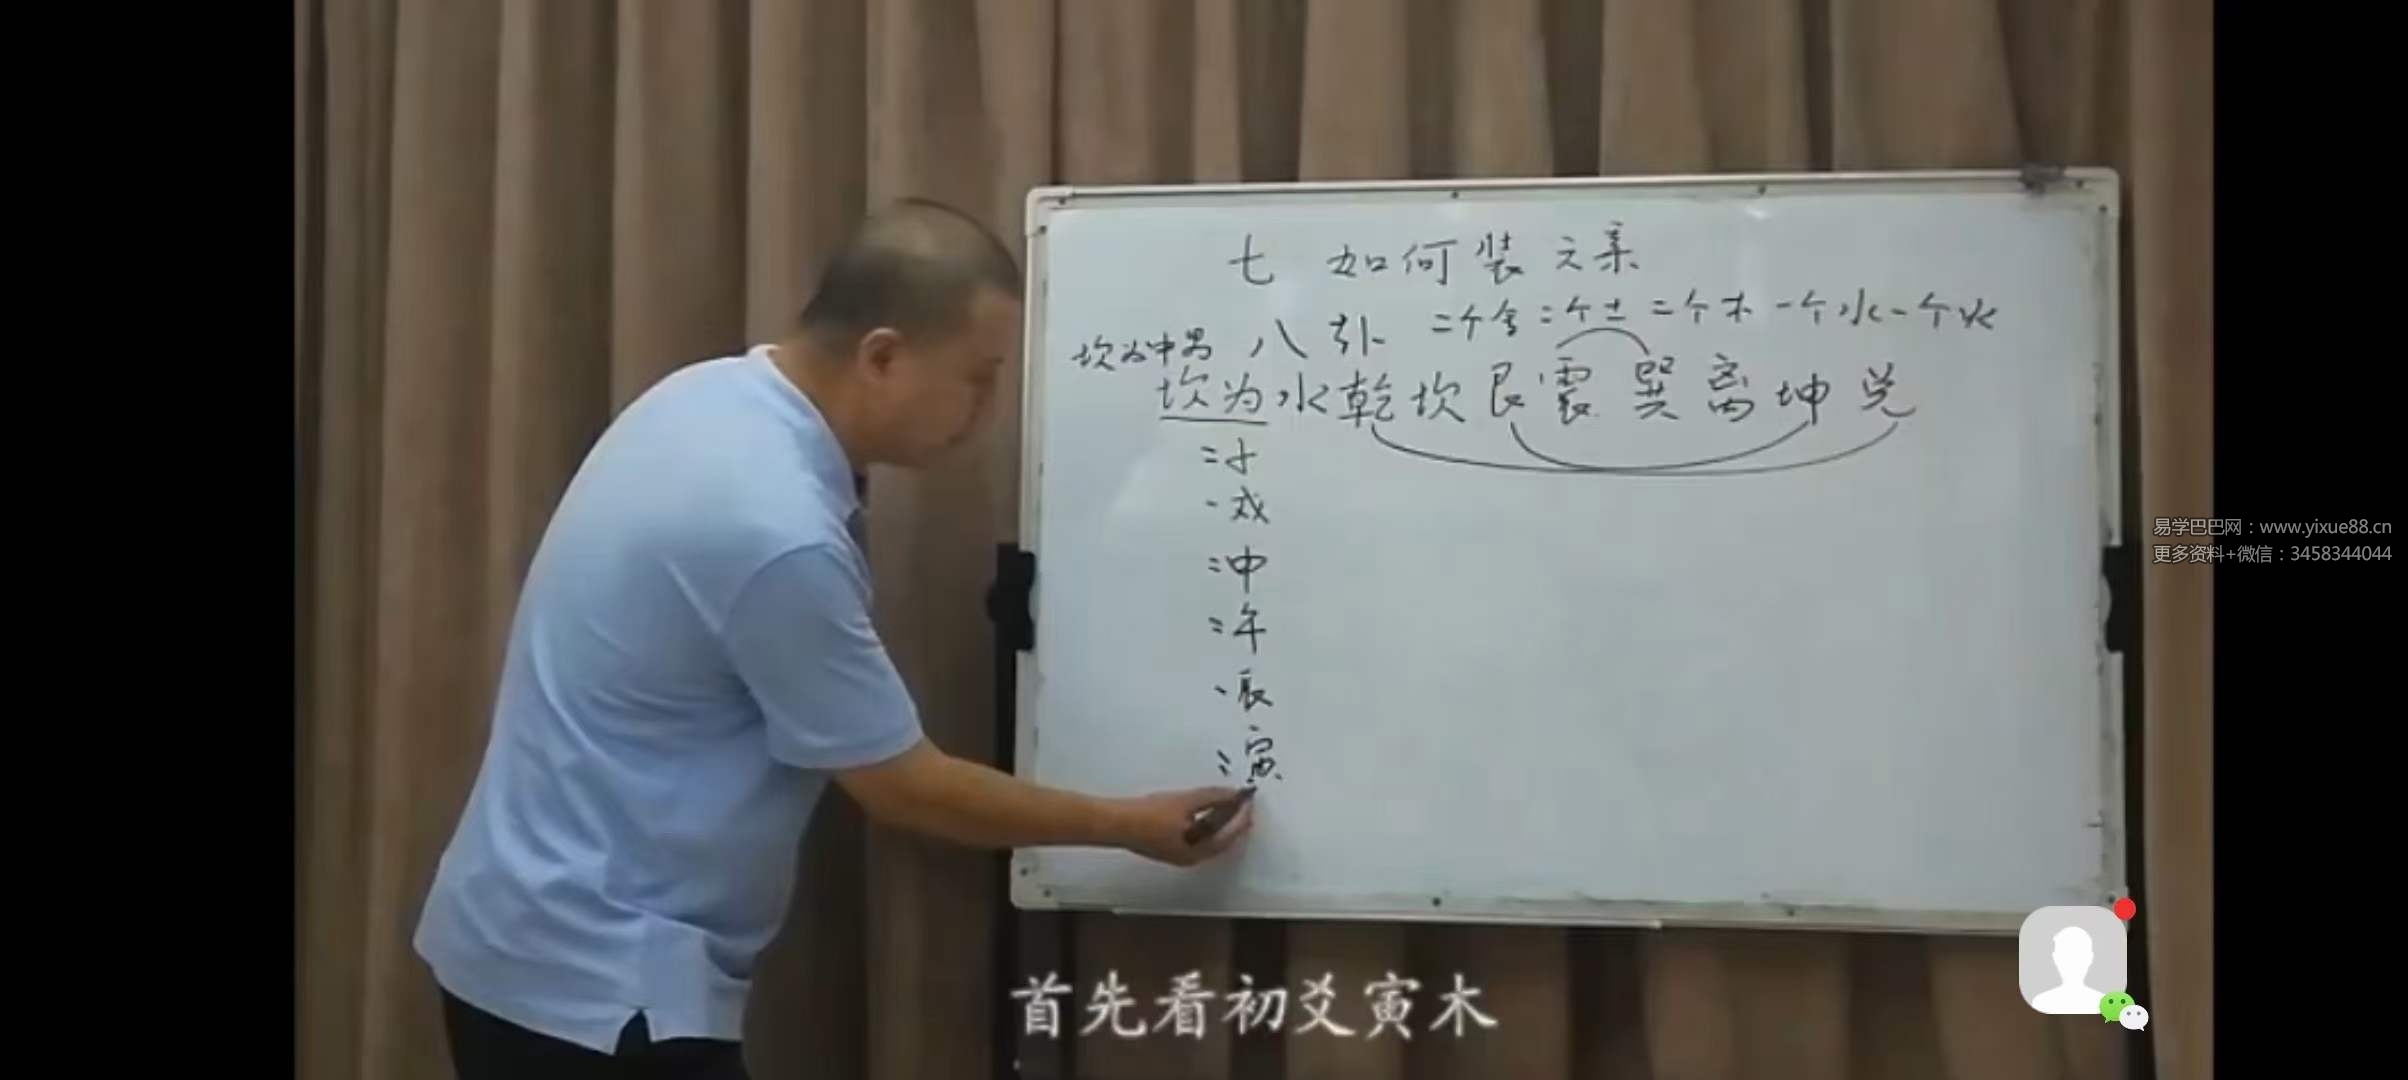 七 如何装六亲
八卦 二个金二个土二个木一个水一个火
坎为中男
坎为水乾坎艮震巽离坤兑
子
戌
申
午
辰
寅
易学巴巴网：www.yixue88.cn
更多资料+微信：3458344044
首先看初爻寅木